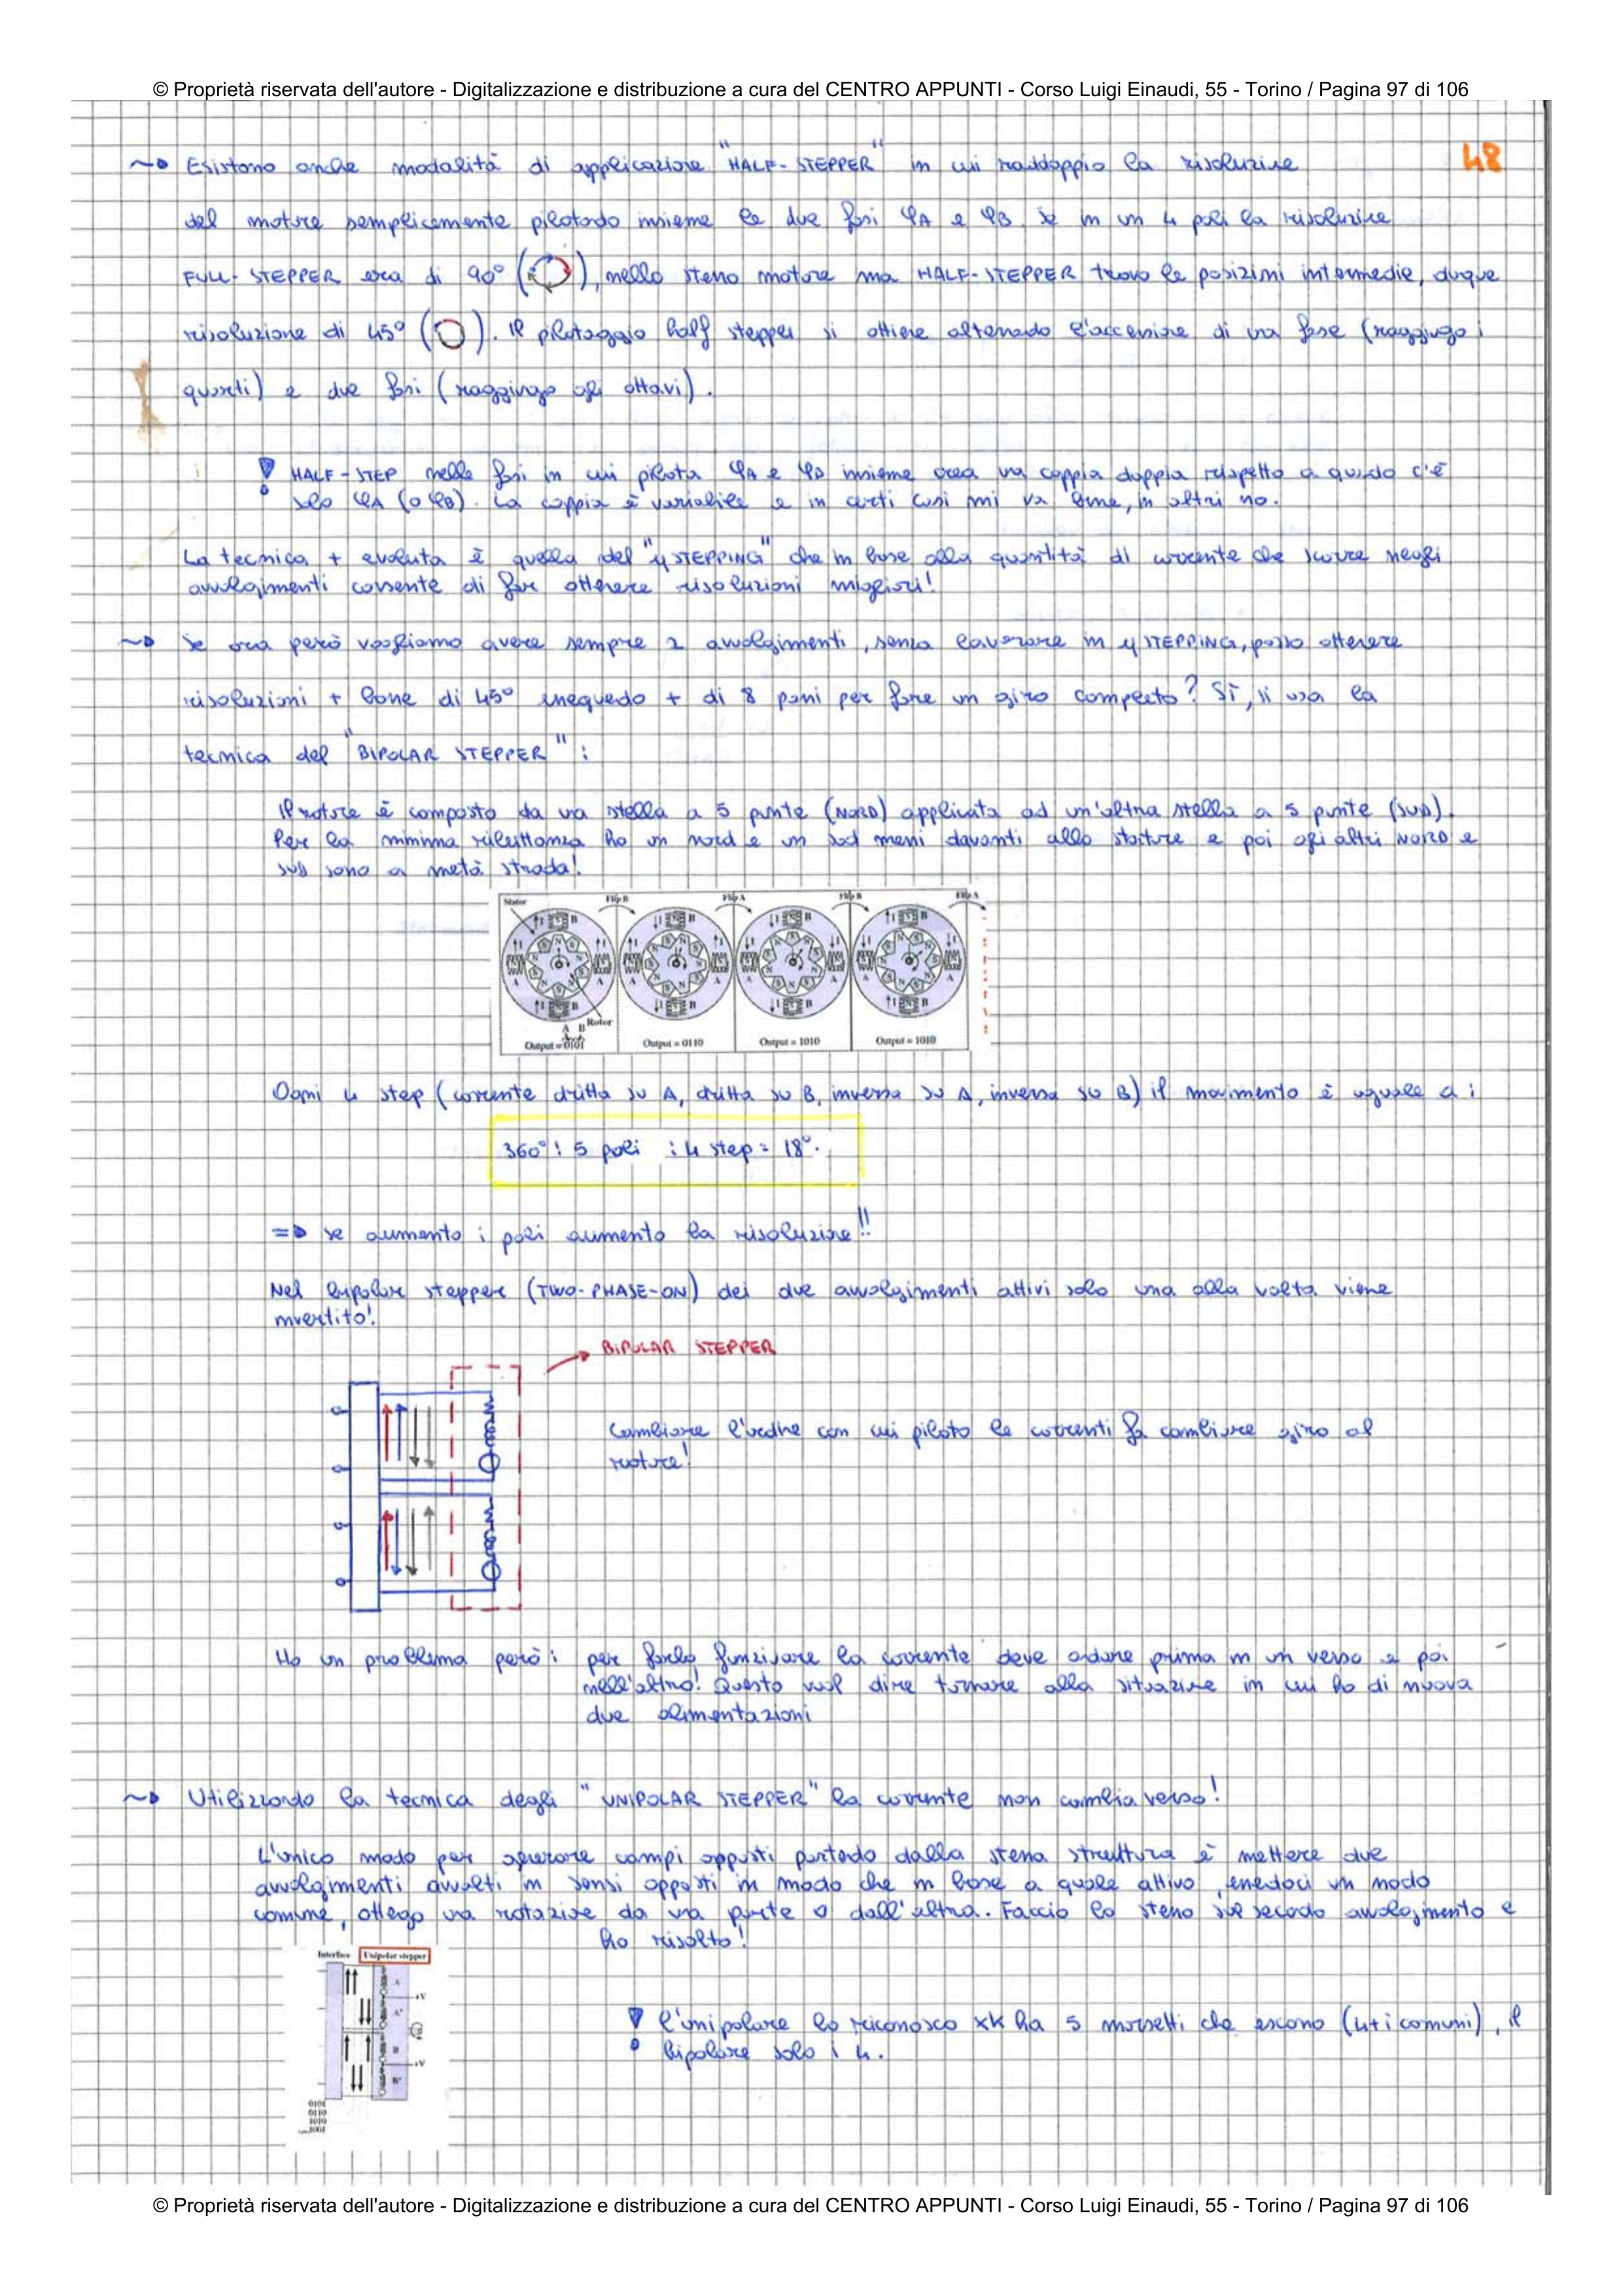 © Proprietà riservata dell'autore - Digitalizzazione e distribuzione a cura del CENTRO APPUNTI - Corso Luigi Einaudi, 55 - Torino / Pagina 97 di 106
48
Esistono anche modalità di applicazione "HALF-STEPPER" in cui raddoppio la risoluzione
del motore semplicemente pilotando insieme le due fasi φA e φB. Se in un 4 poli la risoluzione
FULL-STEPPER era di 90° ( ), nello stesso motore ma HALF-STEPPER trovo le posizioni intermedie, dunque
risoluzione di 45° ( ). Il pilotaggio half stepper si ottiene alternando l'accensione di una fase (raggiungo i
quarti) e due fasi (raggiungo gli ottavi).
! HALF-STEP nelle fasi in cui pilota φA e φB insieme crea una coppia doppia rispetto a quando c'è
solo φA (o φB). La coppia è variabile e in certi casi mi va bene, in altri no.
La tecnica + evoluta è quella del "μSTEPPING" che in base alla quantità di corrente che scorre negli
avvolgimenti consente di far ottenere risoluzioni migliori!
Se ora però vogliamo avere sempre 2 avvolgimenti, senza lavorare in μSTEPPING, posso ottenere
risoluzioni + buone di 45° eseguendo + di 8 passi per fare un giro completo? Sì, si usa la
tecnica del "BIPOLAR STEPPER":
Il rotore è composto da una stella a 5 punte (NORD) applicata ad un'altra stella a 5 punte (SUD).
Per la minima riluttanza ho un nord e un sud messi davanti allo statore e poi gli altri NORD e
SUD sono a metà strada!
Stator Flip B Flip A Flip B Flip A
Rotor
A B
Output = 0101 Output = 0110 Output = 1010 Output = 1010
Ogni 4 step (corrente dritta su A, dritta su B, inversa su A, inversa su B) il movimento è uguale a:
360° : 5 poli : 4 step = 18°.
=> se aumento i poli aumento la risoluzione!!
Nel bipolar stepper (TWO-PHASE-ON) dei due avvolgimenti attivi solo una alla volta viene
invertito!
BIPOLAR STEPPER
Cambiare l'ordine con cui piloto le correnti fa cambiare giro al
motore!
Ho un problema però: per farlo funzionare la corrente deve andare prima in un verso e poi
nell'altro! Questo vuol dire tornare alla situazione in cui ho di nuovo
due alimentazioni
Utilizzando la tecnica degli "UNIPOLAR STEPPER" la corrente non cambia verso!
L'unico modo per generare campi opposti partendo dalla stessa struttura è mettere due
avvolgimenti avvolti in sensi opposti in modo che in base a quale attivo, essendoci un nodo
comune, ottengo una rotazione da una parte o dall'altra. Faccio lo stesso sul secondo avvolgimento e
ho risolto!
Interface Unipolar stepper
A
+V
A'
B
+V
B'
0101
0110
1010
1001
! l'unipolare lo riconosco xk ha 5 morsetti che escono (4+i comuni), il
bipolare solo i 4.
© Proprietà riservata dell'autore - Digitalizzazione e distribuzione a cura del CENTRO APPUNTI - Corso Luigi Einaudi, 55 - Torino / Pagina 97 di 106